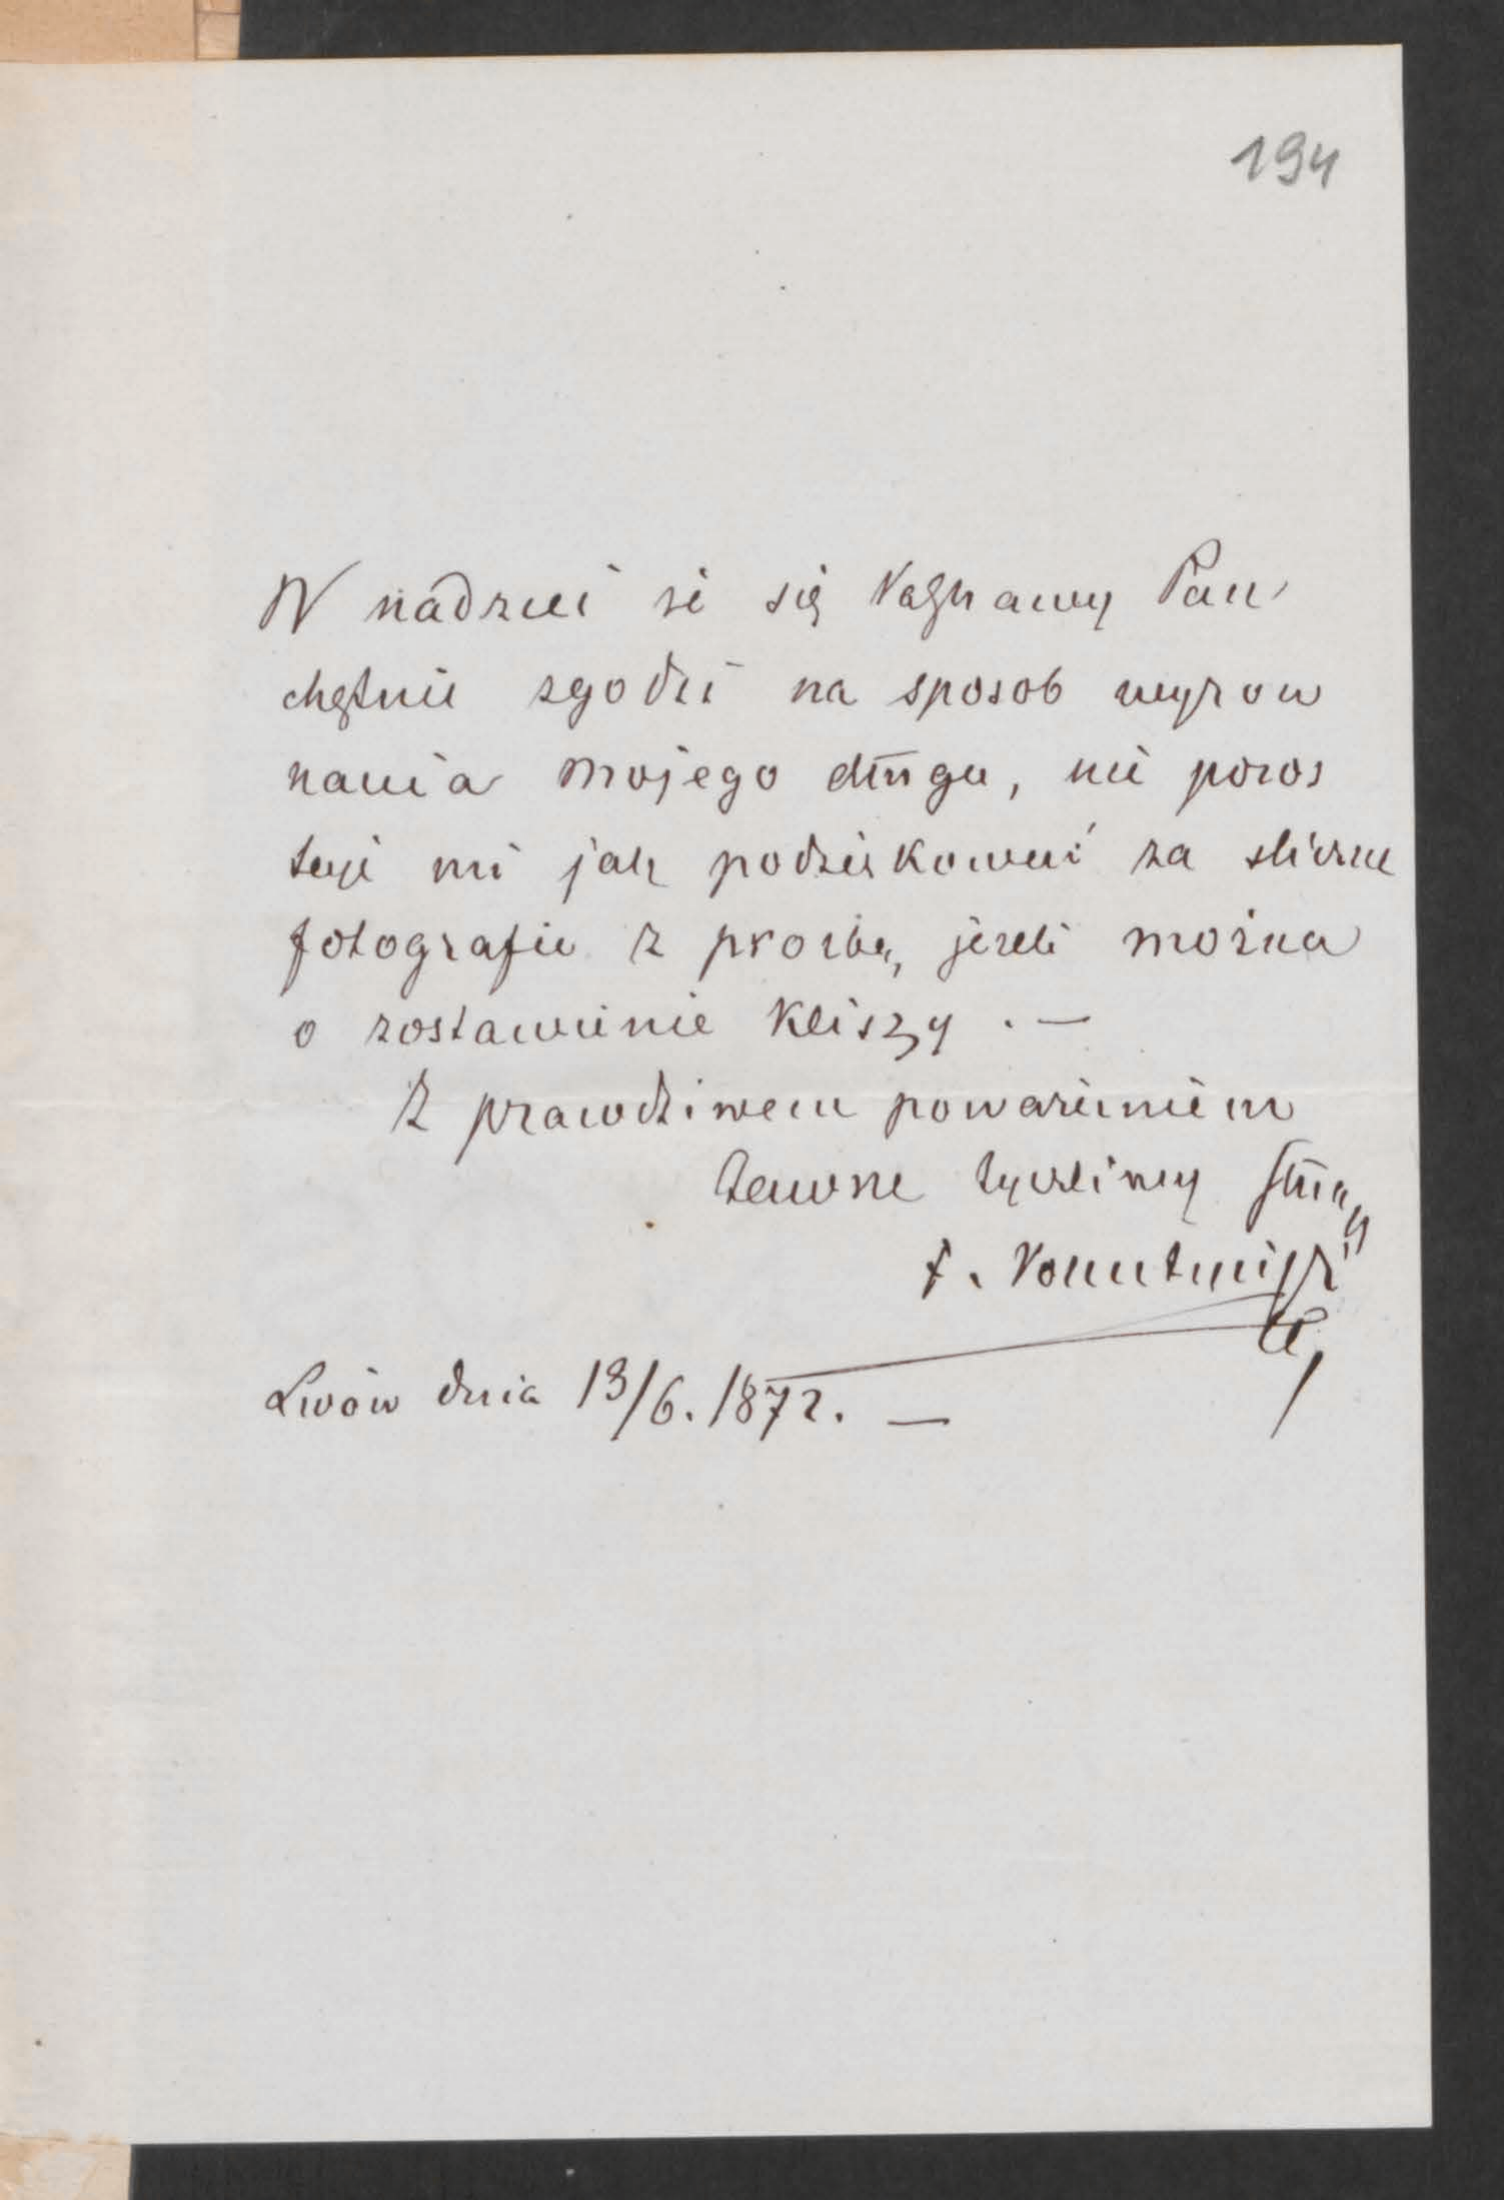 194
W nadziei że się łaskawy Pan
chętnie zgodzi na sposob wyrow
nania mojego długu, nie pozos
taje mi jak podziękować za śliczne
fotografie z prozbą, jeżeli można
o zostawienie kliszy . —
Z prawdziwem poważaniem
zawsze życzliwy sługa
Lwów dnia 13/6. 1872. —